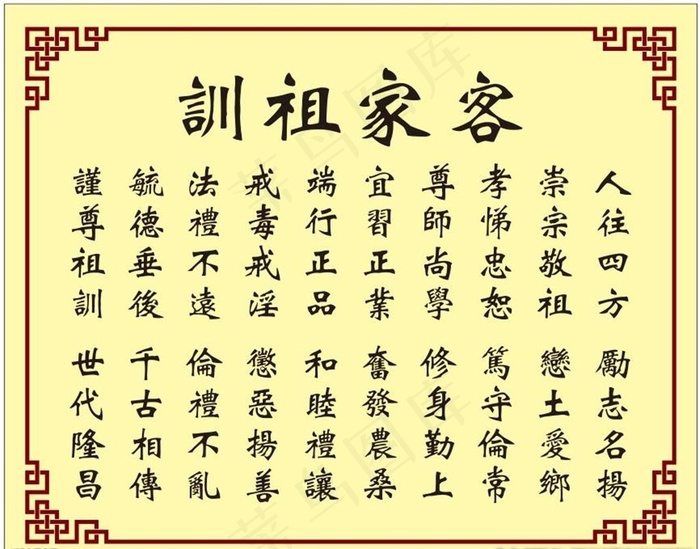 客家祖訓
人往四方
勵志名揚
崇宗敬祖
戀土愛鄉
孝悌忠恕
篤守倫常
尊師尚學
修身勤上
宜習正業
奮發農桑
端行正品
和睦禮讓
戒毒戒淫
懲惡揚善
法禮不遠
倫禮不亂
毓德垂後
千古相傳
謹尊祖訓
世代隆昌
菜鸟图库